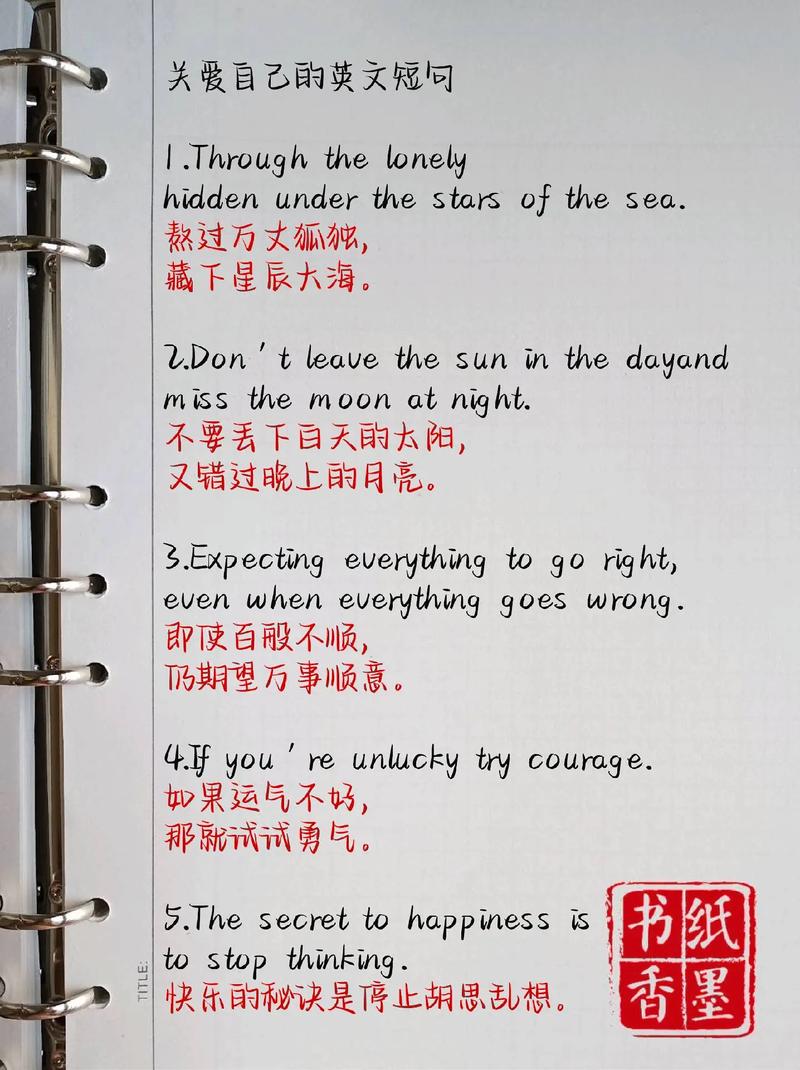 关爱自己的英文短句
1.Through the lonely
hidden under the stars of the sea.
熬过万丈孤独,
藏下星辰大海。
2.Don't leave the sun in the dayand
miss the moon at night.
不要丢下白天的太阳,
又错过晚上的月亮。
3.Expecting everything to go right,
even when everything goes wrong.
即使百般不顺,
仍期望万事顺意。
4.If you're unlucky try courage.
如果运气不好,
那就试试勇气。
5.The secret to happiness is
to stop thinking.
快乐的秘诀是停止胡思乱想。
TITLE:
书纸
香墨